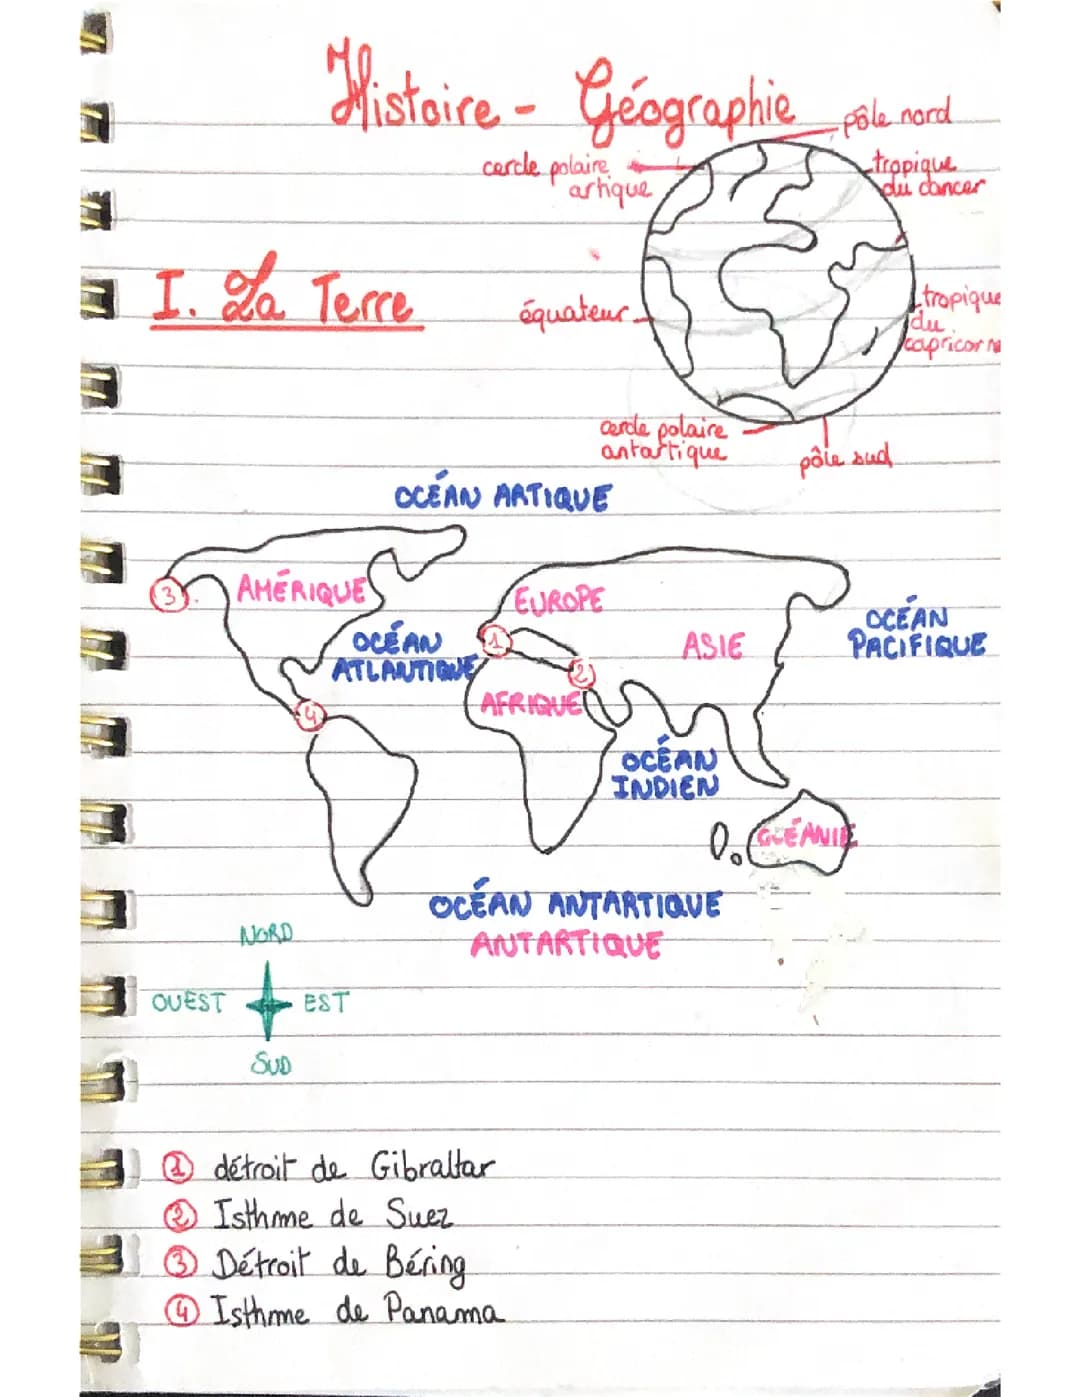 Histoire - Géographie
pôle nord
cercle polaire
artique
tropique
du cancer
I. La Terre
équateur
tropique
du
capricorne
cercle polaire
antartique
pôle sud
OCÉAN ARTIQUE
3
AMÉRIQUE
EUROPE
OCÉAN
PACIFIQUE
OCÉAN
ATLANTIQUE
1
ASIE
2
AFRIQUE
4
OCÉAN
INDIEN
OCÉANIE
OCÉAN ANTARTIQUE
ANTARTIQUE
NORD
OUEST
EST
SUD
1 détroit de Gibraltar
2 Isthme de Suez
3 Détroit de Béring
4 Isthme de Panama